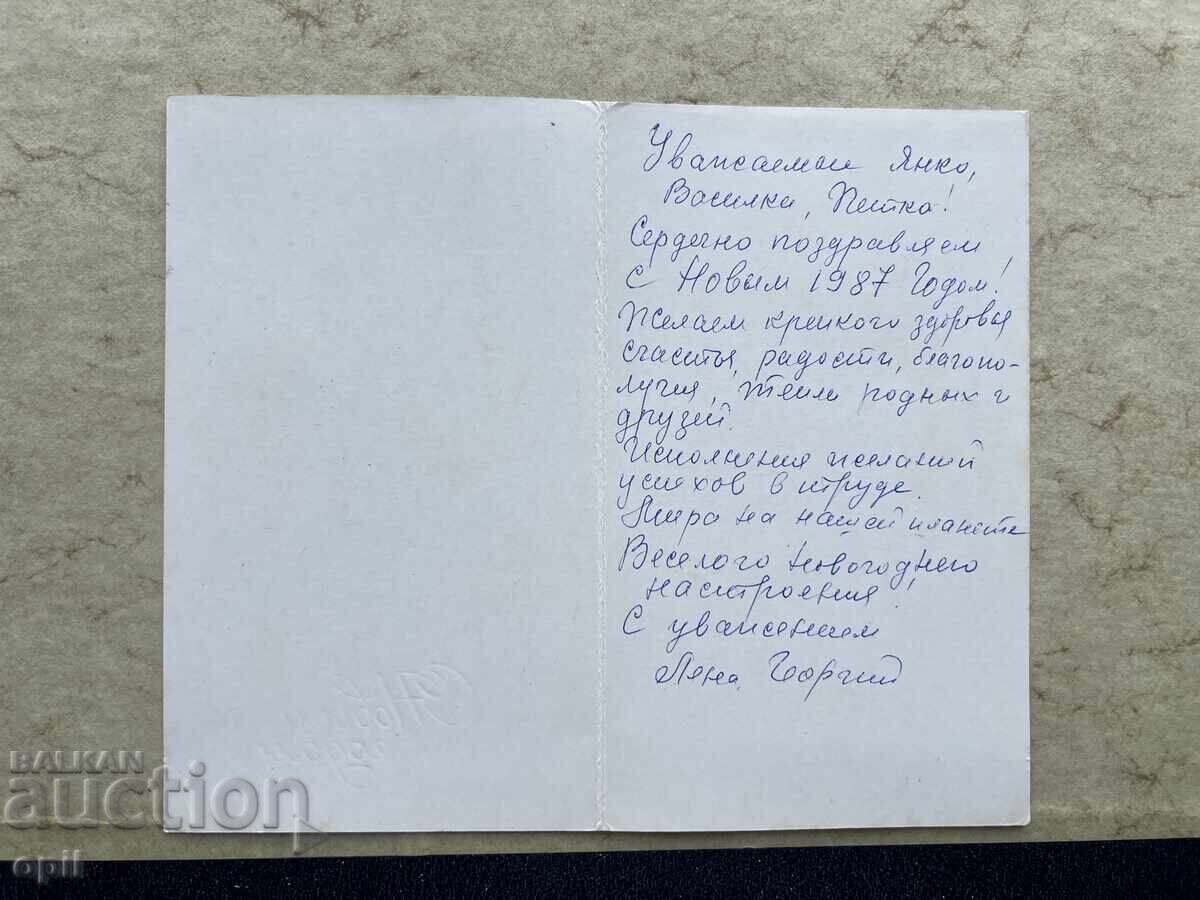 Уважаемые Янко,
Василка, Петка!
Сердечно поздравляем
с Новым 1987 Годом!
Желаем крепкого здоровья
счастья, радости, благопо-
лучия, тепла родных и
друзей.
Исполнения желаний
успехов в труде.
Мира на нашей планете
Веселого Новогоднего
настроения!
С уважением
Лена, Георгий
С Новым годом
BALKAN
auction
opil